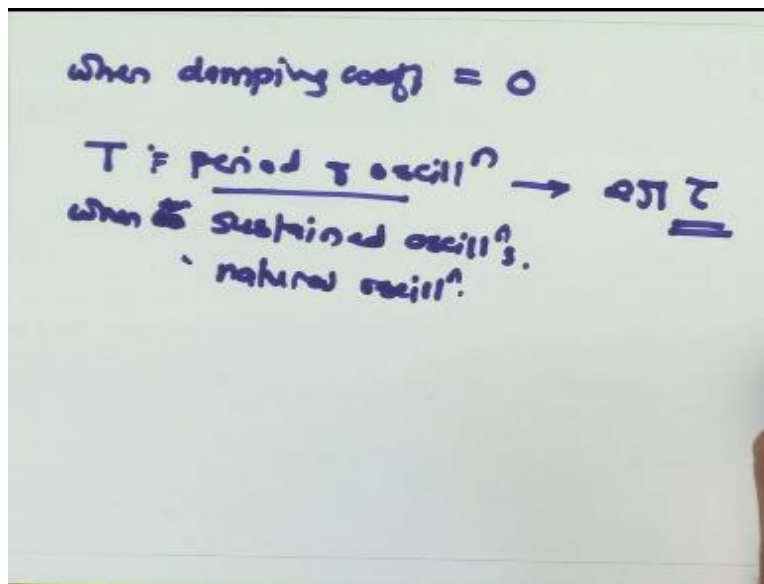 when damping coeff = 0
T = period of oscillⁿ → 2π τ
when sustained oscillⁿs.
natural oscillⁿ.